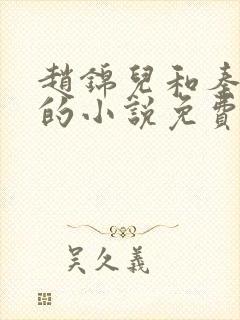 趙錦兒和秦
的小說免費
吳久義